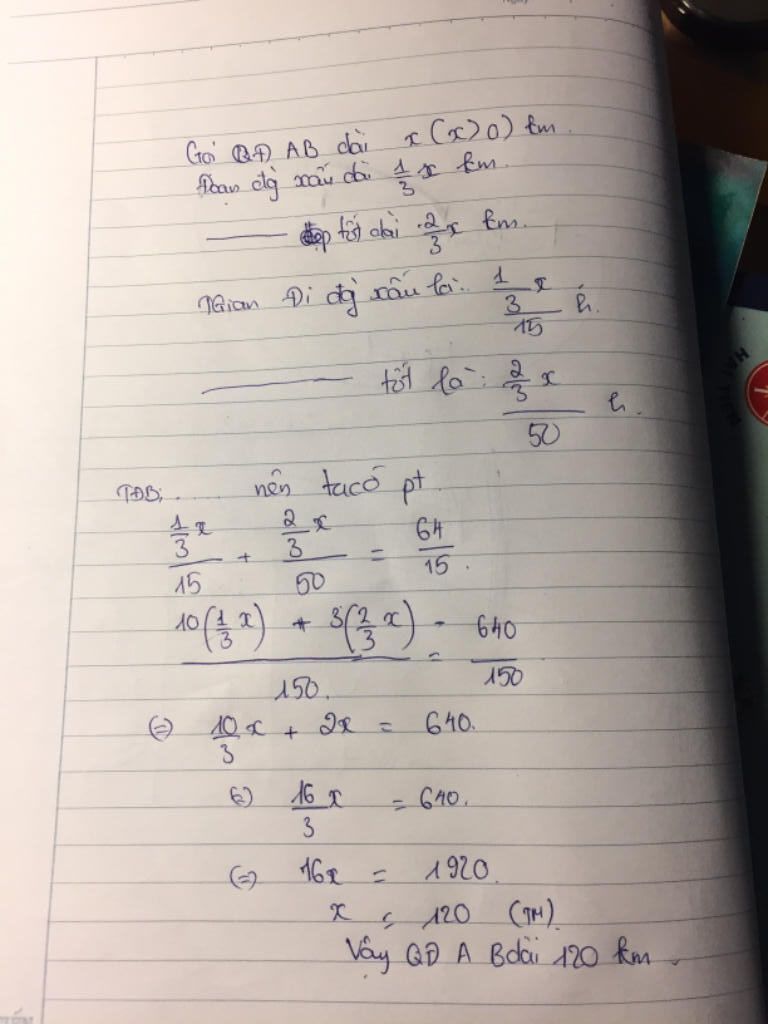 Gọi QĐ AB dài x (x>0) km.
Đoạn đg xấu dài 1/3 x km.
——— tốt dài 2/3 x km.
TGian Đi đg xấu là: (1/3 x)/15 h.
——— tốt là: (2/3 x)/50 h.
TĐB: ..... nên ta có pt
(1/3 x)/15 + (2/3 x)/50 = 64/15.
(10(1/3 x) + 3(2/3 x))/150 = 640/150
(=) 10/3 x + 2x = 640.
(=) 16/3 x = 640.
(=) 16x = 1920.
x = 120 (TM).
Vậy QĐ A B dài 120 km